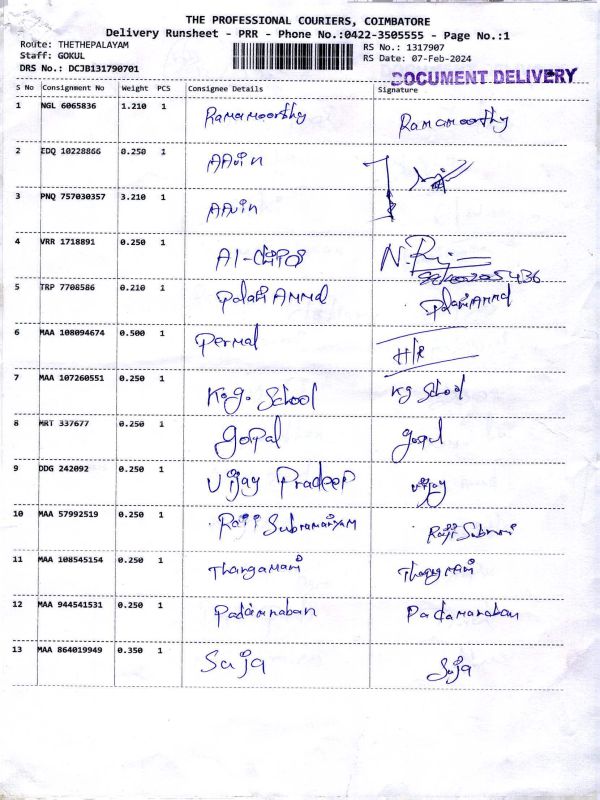 THE PROFESSIONAL COURIERS, COIMBATORE
Delivery Runsheet - PRR - Phone No.:0422-3505555 - Page No.:1
Route: THETHEPALAYAM RS No.: 1317907
Staff: GOKUL RS Date: 07-Feb-2024
DRS No.: DCJB131790701 DOCUMENT DELIVERY
S No Consignment No Weight PCS Consignee Details Signature
1 NGL 6065836 1.210 1 Ramamoorthy Ramamoorthy
2 EDQ 10228866 0.250 1 AAvin
3 PNQ 757030357 3.210 1 AAvin
4 VRR 1718891 0.250 1 N.
5 TRP 7708586 0.210 1 Palani Ammal PalaniAmmal
6 MAA 108094674 0.500 1 Permal H/R
7 MAA 107260551 0.250 1 K.g. School Kg School
8 MRT 337677 0.250 1 Gopal Gopal
9 DDG 242092 0.250 1 Vijay Pradeep Vijay
10 MAA 57992519 0.250 1 Raji Subramaniyam
11 MAA 108545154 0.250 1 Thangamani Thangamani
12 MAA 944541531 0.250 1 Padamnaban Padamanaban
13 MAA 864019949 0.350 1 Suja Suja